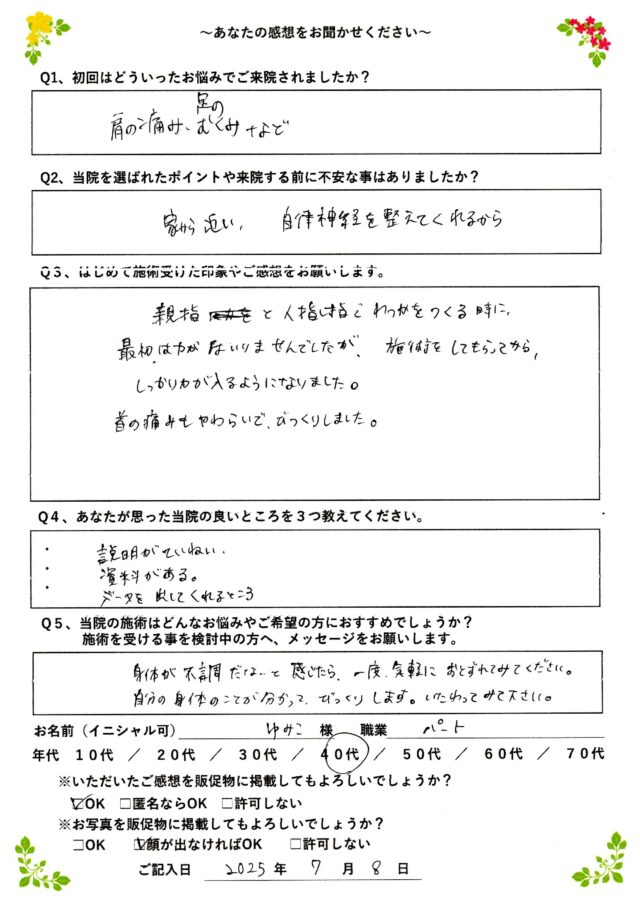 ～あなたの感想をお聞かせください～
Q1、初回はどういったお悩みでご来院されましたか？
足の
肩の痛み、むくみなど
Q2、当院を選ばれたポイントや来院する前に不安な事はありましたか？
家から近い、 自律神経を整えてくれるから
Q３、はじめて施術受けた印象やご感想をお願いします。
親指 と人指し指でわっかをつくる時に、
最初は力がはいりませんでしたが、施術をしてもらってから、
しっかり力が入るようになりました。
首の痛みもやわらいで、びっくりしました。
Q４、あなたが思った当院の良いところを３つ教えてください。
・ 説明がていねい、
・ 資料がある。
・ データを出してくれるところ
Q５、当院の施術はどんなお悩みやご希望の方におすすめでしょうか？
施術を受ける事を検討中の方へ、メッセージをお願いします。
身体が不調だなぁと感じたら、一度、気軽におとずれてみてください。
自分の身体のことが分かって、びっくりします。いたわってみて下さい。
お名前（イニシャル可） ゆみこ 様 職業 パート
年代 １０代 ／ ２０代 ／ ３０代 ／ ４０代 ／ ５０代 ／ ６０代 ／ ７０代
※いただいたご感想を販促物に掲載してもよろしいでしょうか？
☑OK □匿名ならOK □許可しない
※お写真を販促物に掲載してもよろしいでしょうか？
□OK ☑顔が出なければOK □許可しない
ご記入日 2025 年 7 月 8 日